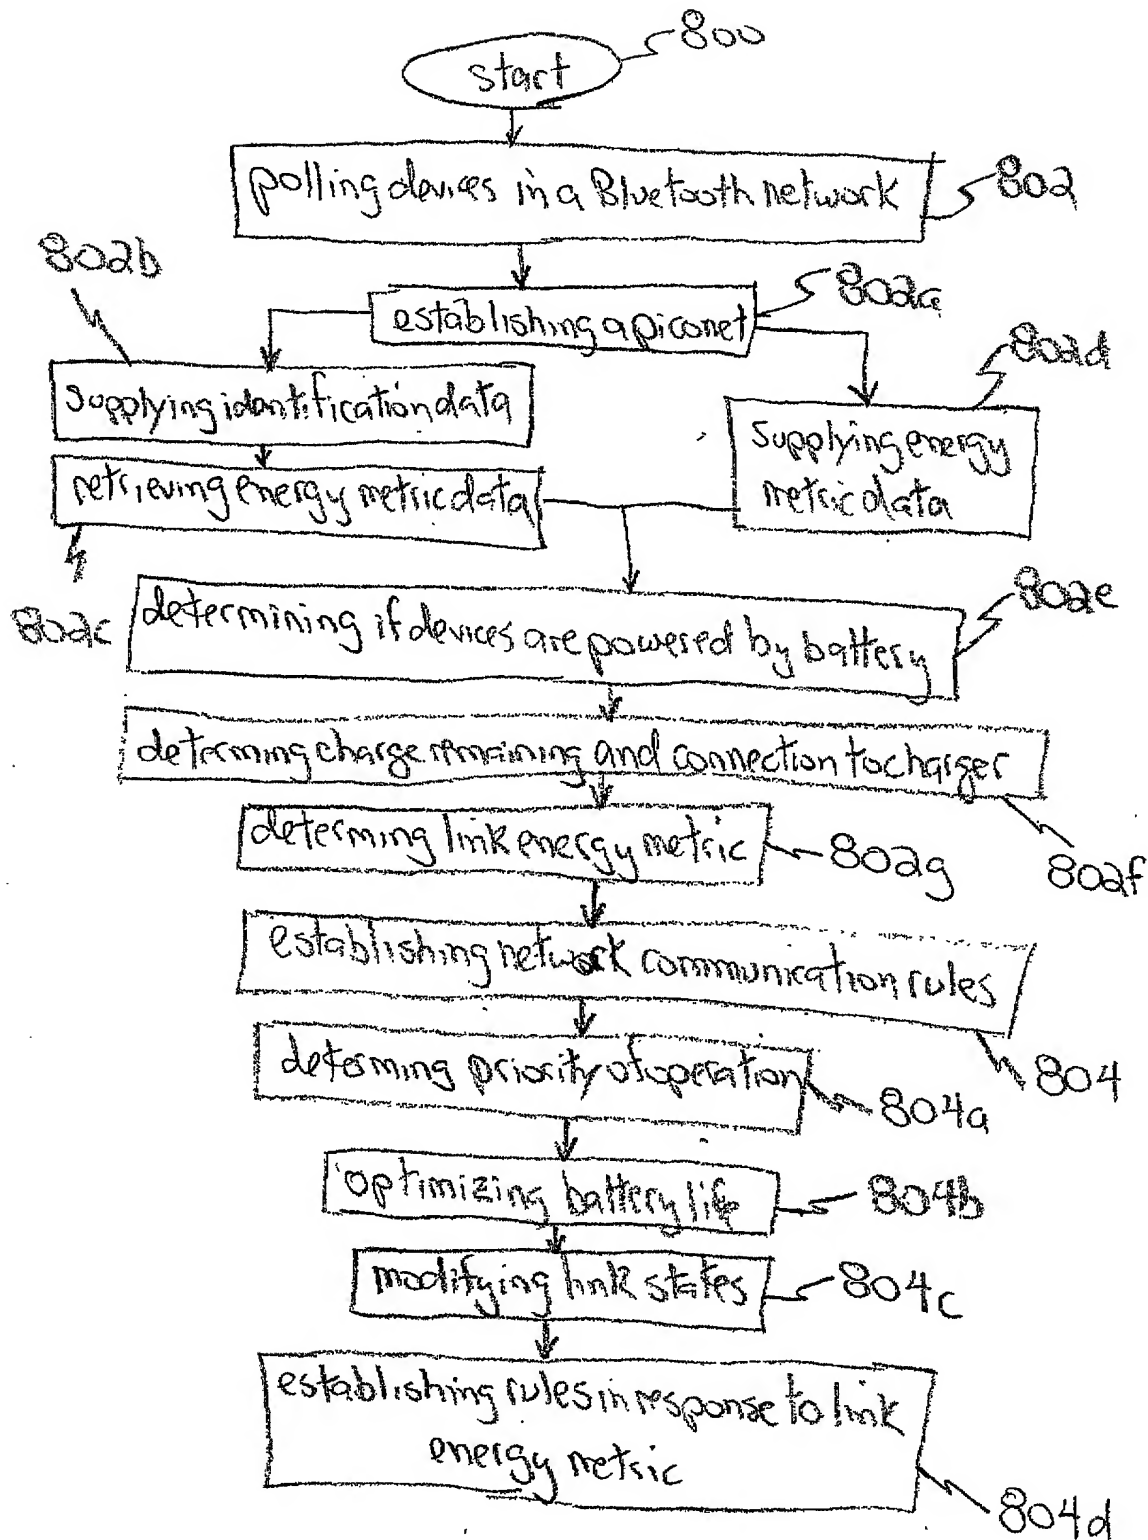 start
800
polling devices in a Bluetooth network
802
802b
establishing a piconet
802a
802d
supplying identification data
supplying energy
metric data
retrieving energy metric data
802c
802e
determining if devices are powered by battery
determing charge remaining and connection to charger
802f
determing link energy metric
802g
establishing network communication rules
804
determing priority of operation
804a
optimizing battery life
804b
modifying link states
804c
establishing rules in response to link
energy metric
804d